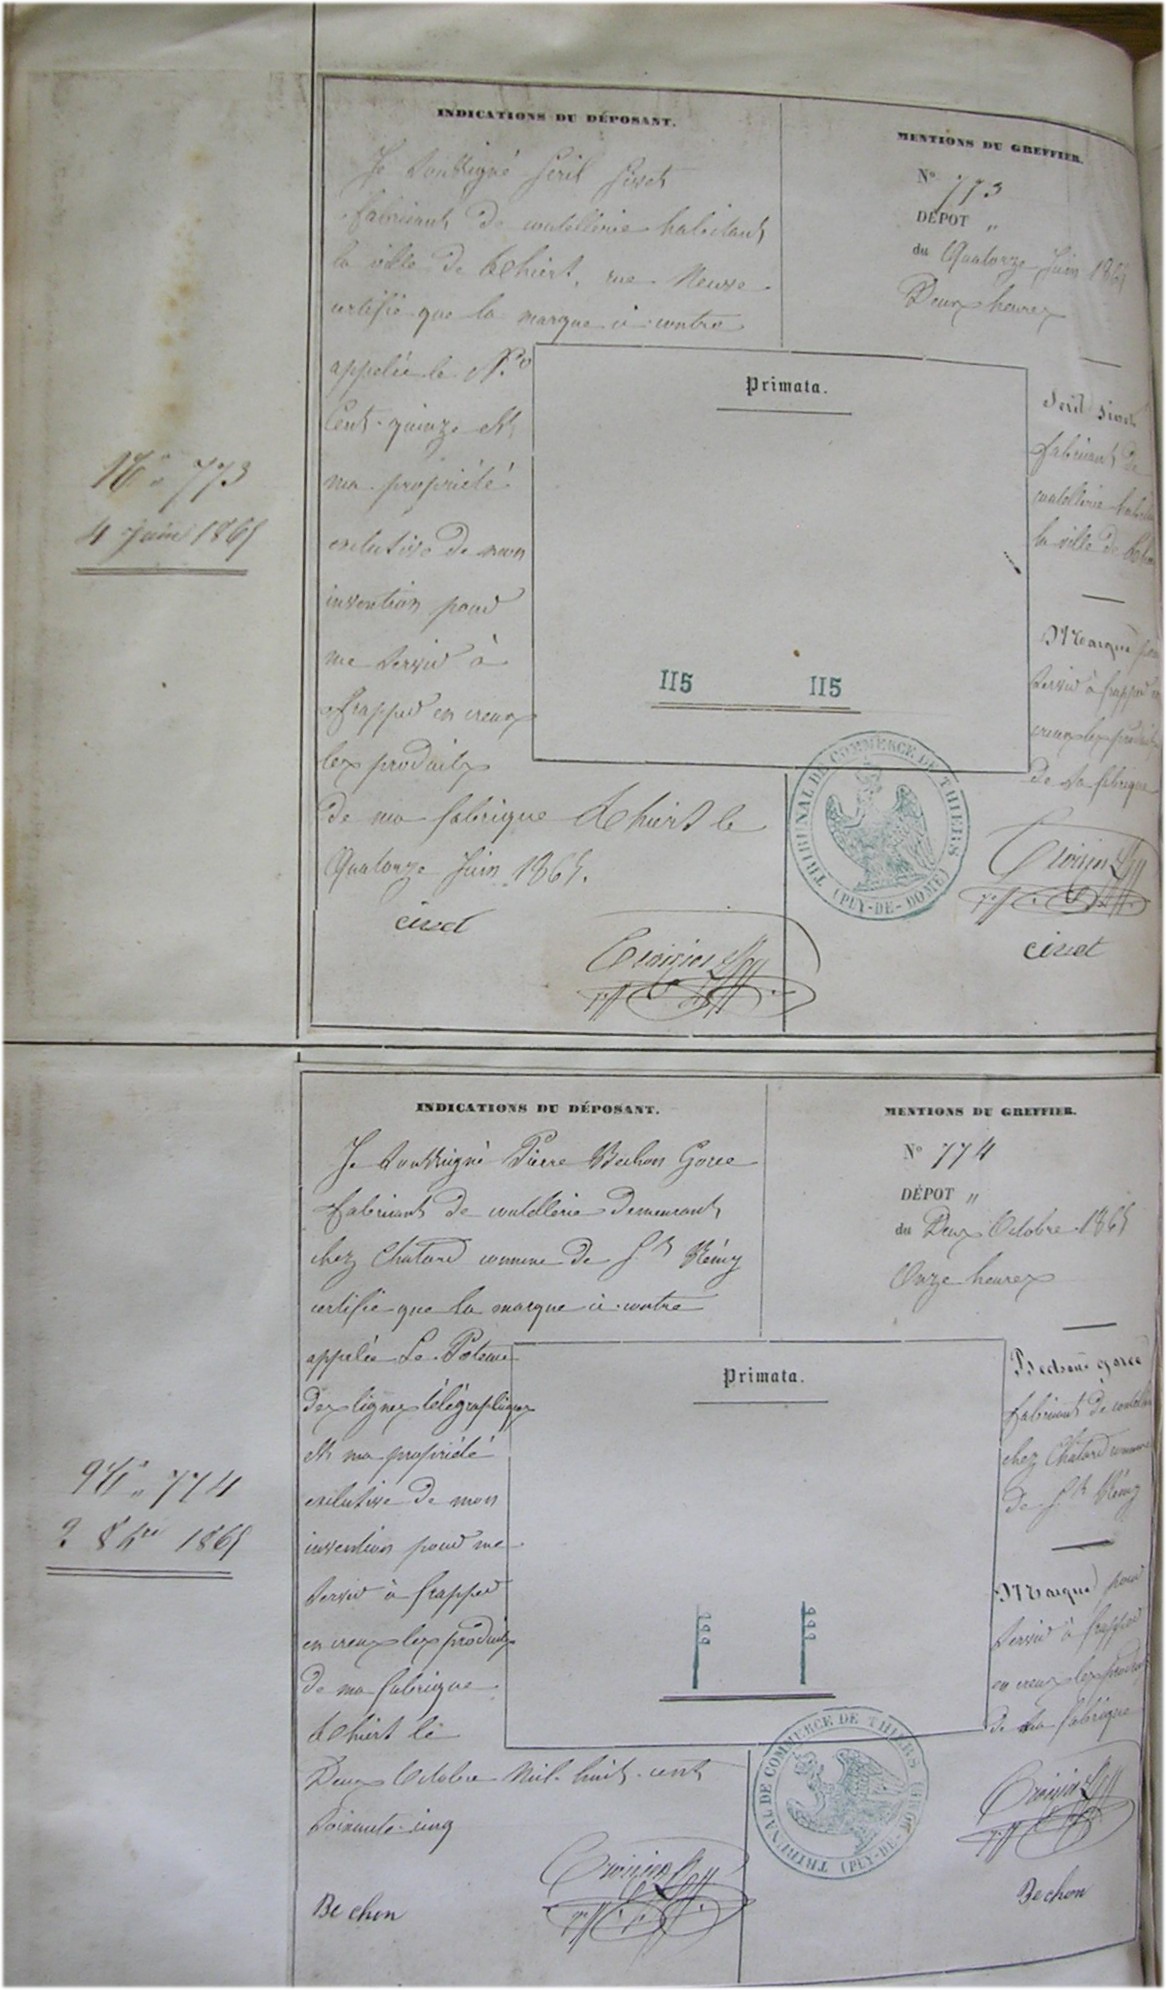 INDICATIONS DU DÉPOSANT.
Je soussigné
fabricant de coutellerie habitant
la ville de Thiers, rue Neuve
certifie que la marque ci-contre
appelée le N.o
Cent-quinze est
ma propriété
exclusive de mon
invention pour
me servir à
frapper en creux
les produits
de ma fabrique Thiers le
Quatorze Juin 1865.
civet
MENTIONS DU GREFFIER.
No 773
DÉPOT "
du Quatorze Juin 1865
Deux heures
Primata.
115 115
fabricant de
coutellerie
la ville de
Marque pour
servir à frapper en
creux les produits
de sa fabrique
civet
TRIBUNAL DE COMMERCE DE THIERS
(PUY-DE-DOME)
No 773
4 Juin 1865
INDICATIONS DU DÉPOSANT.
Je soussigné Pierre Bechon Gorce
fabricant de coutellerie demeurant
chez Chatard commune de St Rémy
certifie que la marque ci-contre
appelée Le Poteau
des lignes télégraphiques
est ma propriété
exclusive de mon
invention pour me
servir à frapper
en creux les produits
de ma fabrique
Thiers le
Deux Octobre Mil-huit-cent
soixante-cinq
Bechon
MENTIONS DU GREFFIER.
No 774
DÉPOT "
du Deux Octobre 1865
Onze heures
Primata.
Bechon Gorce
fabricant de
chez Chatard commune
de St Rémy
Marque pour
servir à frapper
en creux les produits
de sa fabrique
Bechon
TRIBUNAL DE COMMERCE DE THIERS
(PUY-DE-
No 774
2 8bre 1865